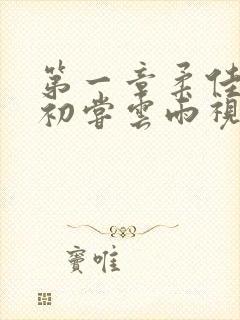 第一章柔佳
初尝云雨视
窦唯